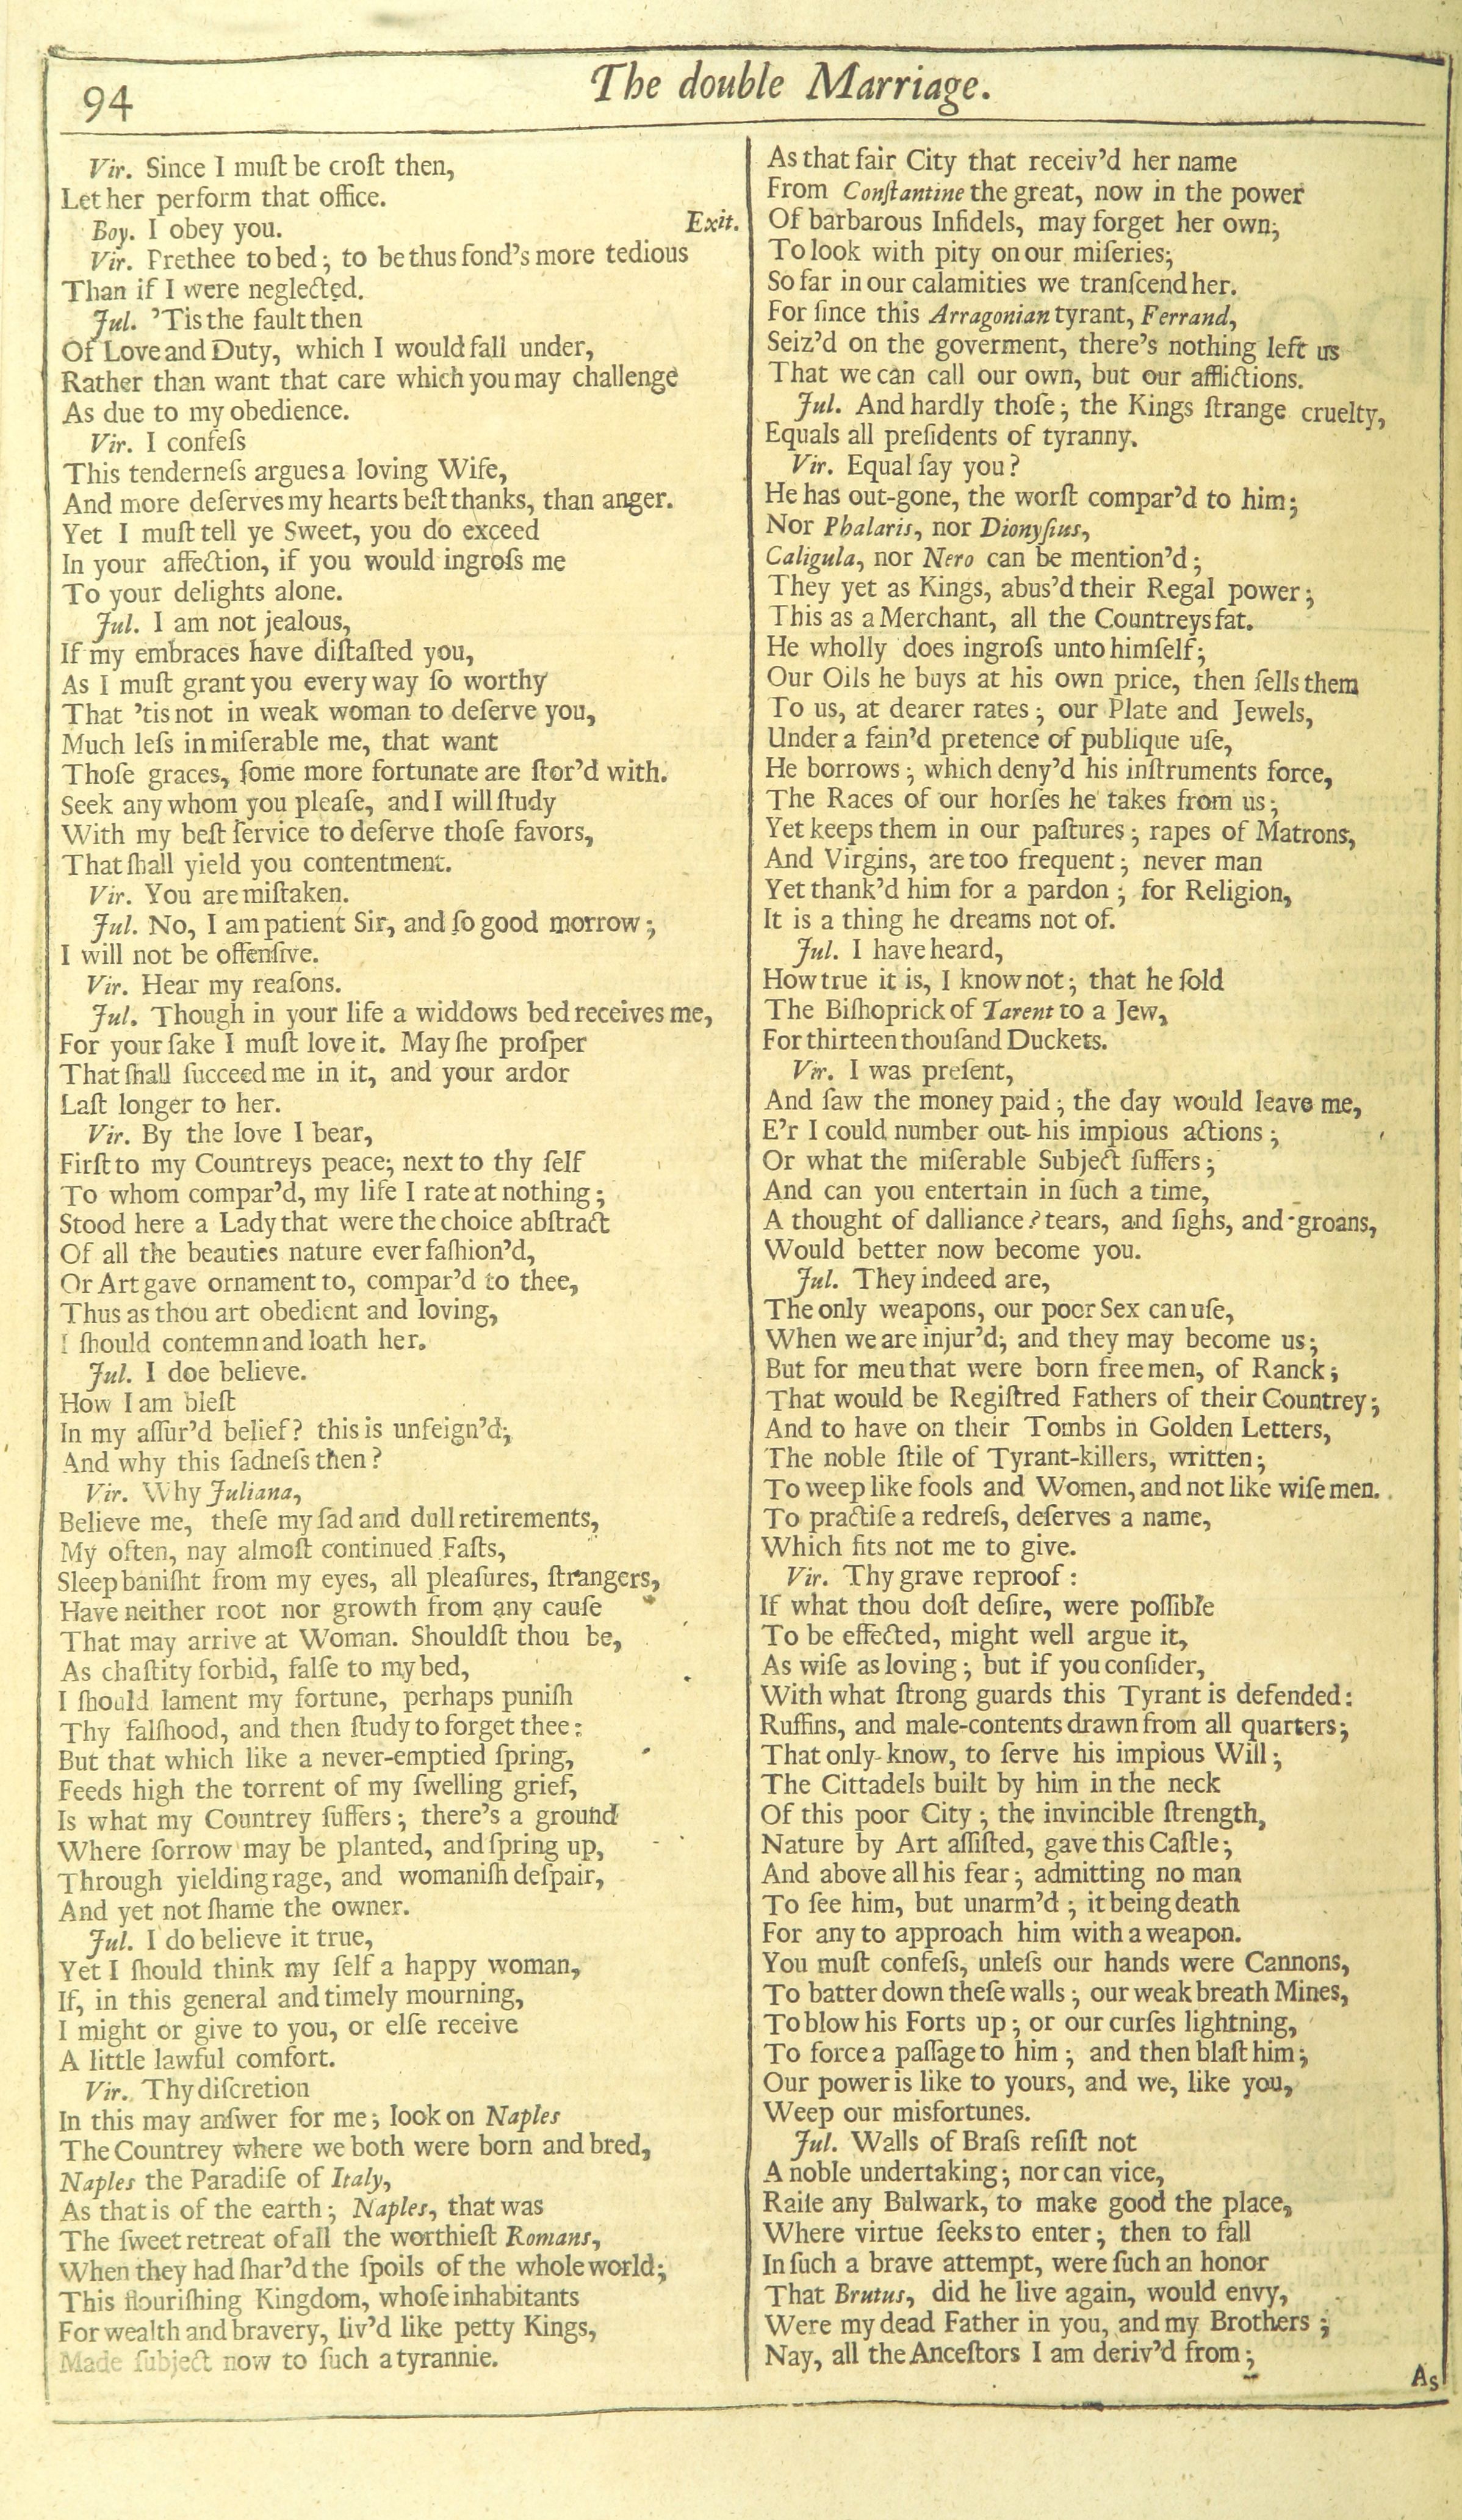 94
The double Marriage.
Vir. Since I muſt be croſt then,
Let her perform that office.
Boy. I obey you. Exit.
Vir. Prethee to bed; to be thus fond's more tedious
Than if I were neglected.
Jul. 'Tis the fault then
Of Love and Duty, which I would fall under,
Rather than want that care which you may challenge
As due to my obedience.
Vir. I confeſs
This tenderneſs argues a loving Wife,
And more deſerves my hearts beſt thanks, than anger.
Yet I muſt tell ye Sweet, you do exceed
In your affection, if you would ingroſs me
To your delights alone.
Jul. I am not jealous,
If my embraces have diſtaſted you,
As I muſt grant you every way ſo worthy
That 'tis not in weak woman to deſerve you,
Much leſs in miſerable me, that want
Thoſe graces, ſome more fortunate are ſtor'd with.
Seek any whom you pleaſe, and I will ſtudy
With my beſt ſervice to deſerve thoſe favors,
That ſhall yield you contentment.
Vir. You are miſtaken.
Jul. No, I am patient Sir, and ſo good morrow;
I will not be offenſive.
Vir. Hear my reaſons.
Jul. Though in your life a widdows bed receives me,
For your ſake I muſt love it. May ſhe proſper
That ſhall ſucceed me in it, and your ardor
Laſt longer to her.
Vir. By the love I bear,
Firſt to my Countreys peace; next to thy ſelf
To whom compar'd, my life I rate at nothing;
Stood here a Lady that were the choice abſtract
Of all the beauties nature ever faſhion'd,
Or Art gave ornament to, compar'd to thee,
Thus as thou art obedient and loving,
I ſhould contemn and loath her.
Jul. I doe believe.
How I am bleſt
In my aſſur'd belief? this is unfeign'd;
And why this ſadneſs then?
Vir. Why Juliana,
Believe me, theſe my ſad and dull retirements,
My often, nay almoſt continued Faſts,
Sleep baniſht from my eyes, all pleaſures, ſtrangers,
Have neither root nor growth from any cauſe
That may arrive at Woman. Shouldſt thou be,
As chaſtity forbid, falſe to my bed,
I ſhould lament my fortune, perhaps puniſh
Thy falſhood, and then ſtudy to forget thee:
But that which like a never-emptied ſpring,
Feeds high the torrent of my ſwelling grief,
Is what my Countrey ſuffers; there's a ground
Where ſorrow may be planted, and ſpring up,
Through yielding rage, and womaniſh deſpair,
And yet not ſhame the owner.
Jul. I do believe it true,
Yet I ſhould think my ſelf a happy woman,
If, in this general and timely mourning,
I might or give to you, or elſe receive
A little lawful comfort.
Vir. Thy diſcretion
In this may anſwer for me; look on Naples
The Countrey where we both were born and bred,
Naples the Paradiſe of Italy,
As that is of the earth; Naples, that was
The ſweet retreat of all the worthieſt Romans,
When they had ſhar'd the ſpoils of the whole world;
This flouriſhing Kingdom, whoſe inhabitants
For wealth and bravery, liv'd like petty Kings,
Made ſubject now to ſuch a tyrannie.
As that fair City that receiv'd her name
From Conſtantine the great, now in the power
Of barbarous Infidels, may forget her own;
To look with pity on our miſeries;
So far in our calamities we tranſcend her.
For ſince this Arragonian tyrant, Ferrand,
Seiz'd on the goverment, there's nothing left us
That we can call our own, but our afflictions.
Jul. And hardly thoſe; the Kings ſtrange cruelty,
Equals all preſidents of tyranny.
Vir. Equal ſay you?
He has out-gone, the worſt compar'd to him;
Nor Phalaris, nor Dionyſius,
Caligula, nor Nero can be mention'd;
They yet as Kings, abus'd their Regal power;
This as a Merchant, all the Countreys fat.
He wholly does ingroſs unto himſelf;
Our Oils he buys at his own price, then ſells them
To us, at dearer rates; our Plate and Jewels,
Under a fain'd pretence of publique uſe,
He borrows; which deny'd his inſtruments force,
The Races of our horſes he takes from us;
Yet keeps them in our paſtures; rapes of Matrons,
And Virgins, are too frequent; never man
Yet thank'd him for a pardon; for Religion,
It is a thing he dreams not of.
Jul. I have heard,
How true it is, I know not; that he ſold
The Biſhoprick of Tarent to a Jew,
For thirteen thouſand Duckets.
Vir. I was preſent,
And ſaw the money paid; the day would leave me,
E'r I could number out his impious actions;
Or what the miſerable Subject ſuffers;
And can you entertain in ſuch a time,
A thought of dalliance? tears, and ſighs, and groans,
Would better now become you.
Jul. They indeed are,
The only weapons, our poor Sex can uſe,
When we are injur'd; and they may become us;
But for meu that were born free men, of Ranck;
That would be Regiſtred Fathers of their Countrey;
And to have on their Tombs in Golden Letters,
The noble ſtile of Tyrant-killers, written;
To weep like fools and Women, and not like wiſe men.
To practiſe a redreſs, deſerves a name,
Which fits not me to give.
Vir. Thy grave reproof:
If what thou doſt deſire, were poſſible
To be effected, might well argue it,
As wiſe as loving; but if you conſider,
With what ſtrong guards this Tyrant is defended:
Ruffins, and male-contents drawn from all quarters;
That only know, to ſerve his impious Will;
The Cittadels built by him in the neck
Of this poor City; the invincible ſtrength,
Nature by Art aſſiſted, gave this Caſtle;
And above all his fear; admitting no man
To ſee him, but unarm'd; it being death
For any to approach him with a weapon.
You muſt confeſs, unleſs our hands were Cannons,
To batter down theſe walls; our weak breath Mines,
To blow his Forts up; or our curſes lightning,
To force a paſſage to him; and then blaſt him;
Our power is like to yours, and we, like you,
Weep our misfortunes.
Jul. Walls of Braſs reſiſt not
A noble undertaking; nor can vice,
Raiſe any Bulwark, to make good the place,
Where virtue ſeeks to enter; then to fall
In ſuch a brave attempt, were ſuch an honor
That Brutus, did he live again, would envy,
Were my dead Father in you, and my Brothers;
Nay, all the Anceſtors I am deriv'd from;
As